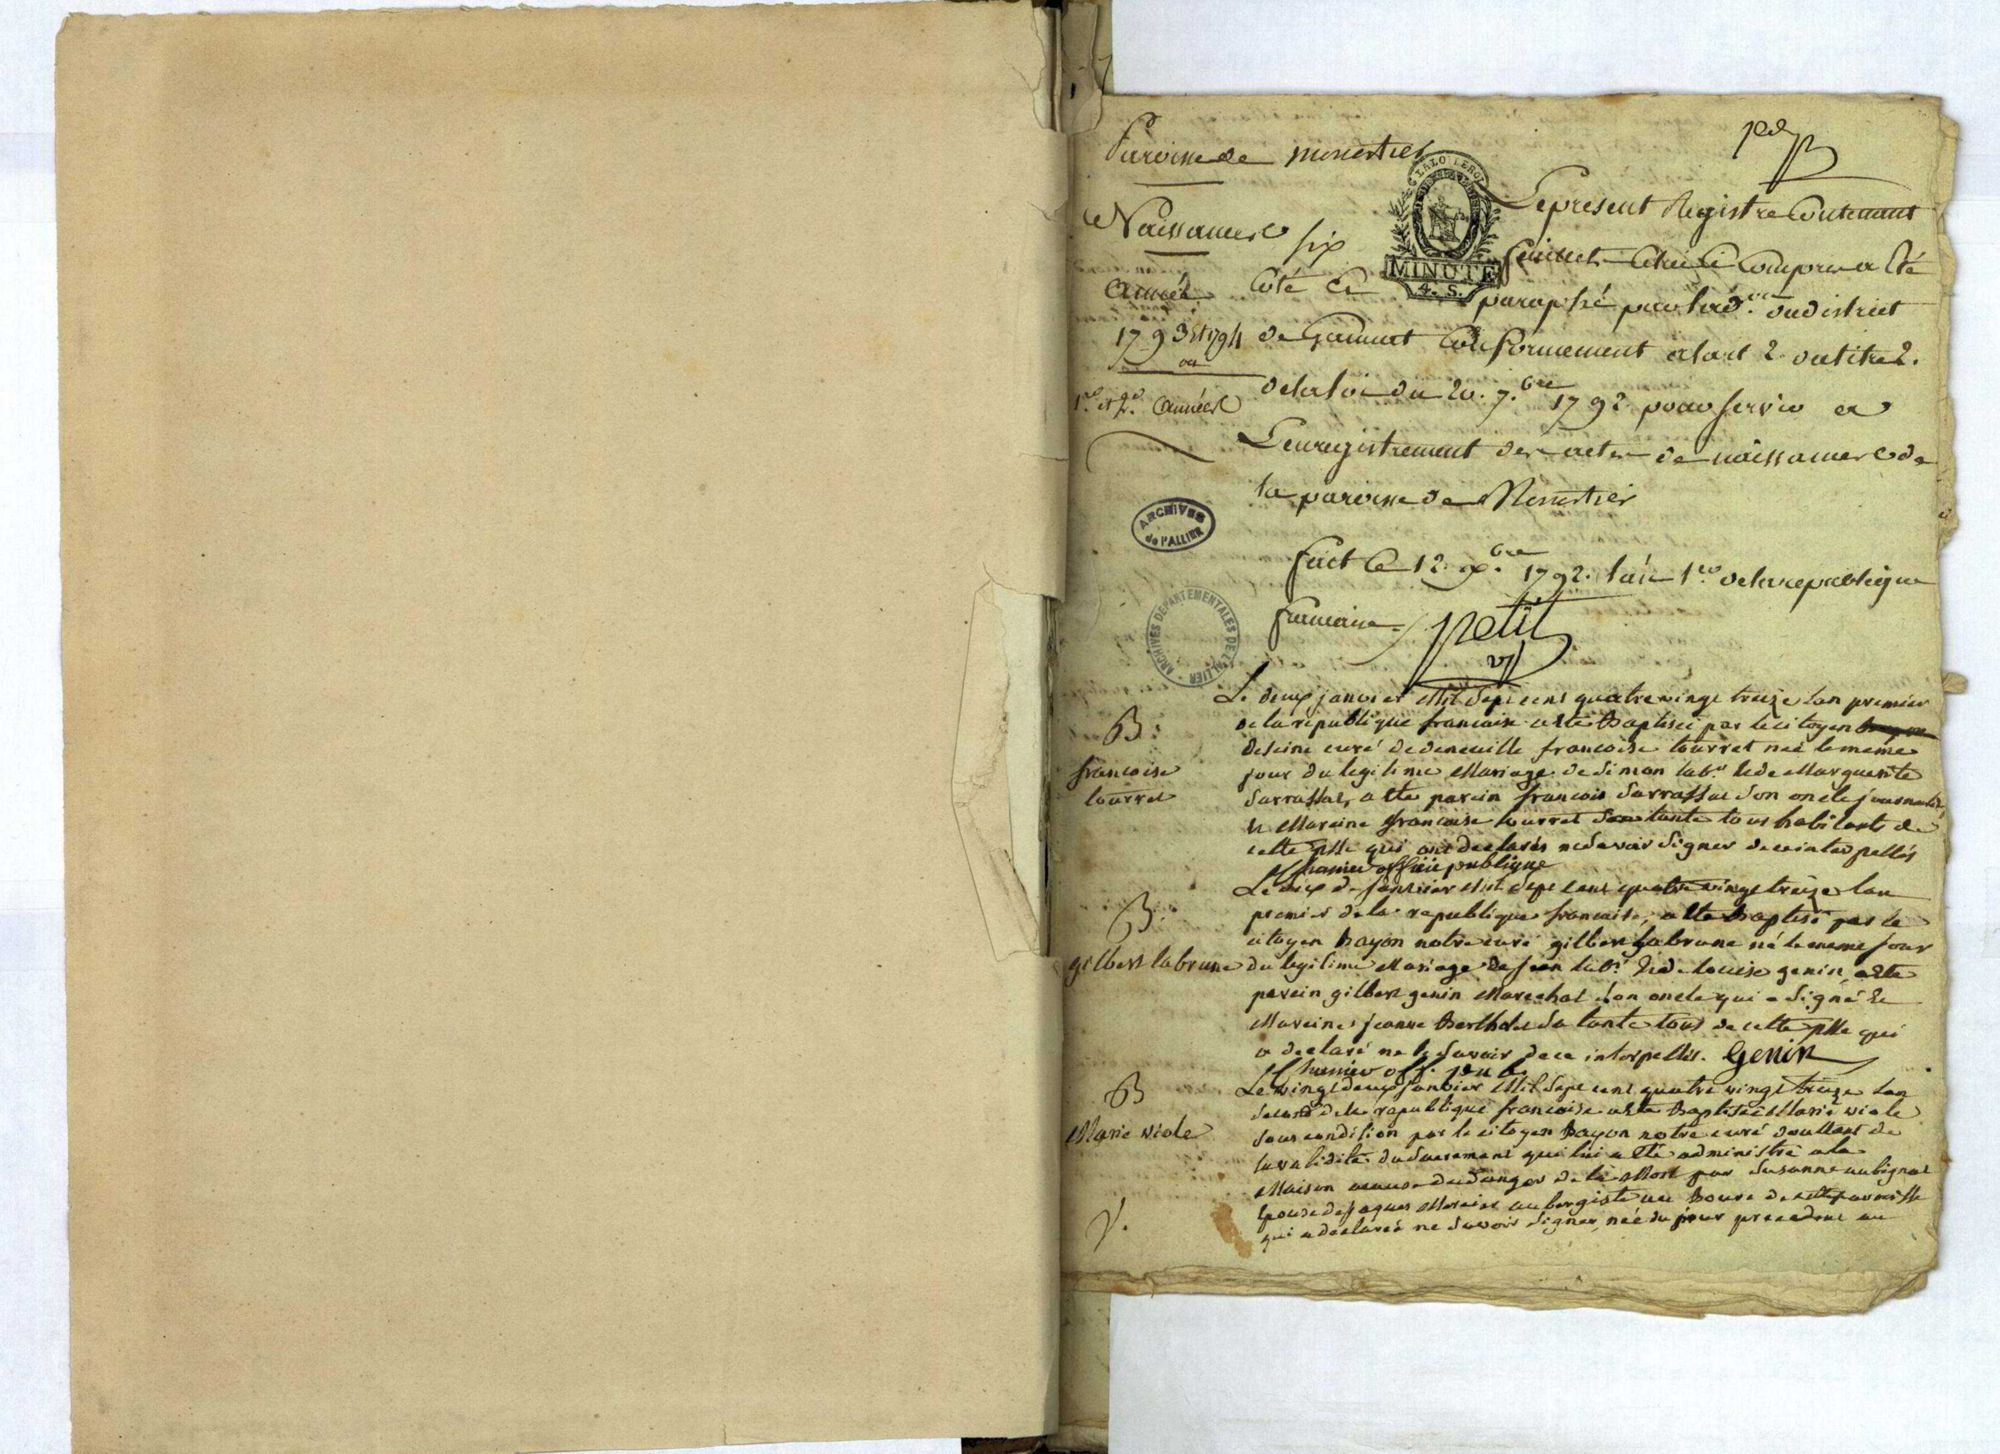 Paroisse de Monestier
Naissances
Année
1793 et 1794
ou
1re et 2e. Années
LA LOI LE ROI
MINUTE
4. S.
Le present Registre Contenant
six feuillets celui ci compris a Eté
Coté Et paraphé par du district
de Gannat Conformement a lart 2. du titre 2.
de la loi du 20. 7.bre 1792. pour servir a
L'enregistrement des actes de naissances de
la paroisse de Monestier
fait Ce 12. x.bre 1792. l'an 1er de la republique
francaise
petit
ARCHIVES
de l'ALLIER
ARCHIVES DEPARTEMENTALES DE L'ALLIER
B.
francoise
tourret
Le deux janvier Mil Sept cens quatre vingt treize l'an premier
de la republique francaise a ete Baptisée par le citoyen
curé de deneuille francoise tourret née le meme
jour du legitime Mariage de Simon lab.r Et de Marguerite
Sarrassat, a ete parein francois Sarrassat Son oncle journalié
Et Mareine francoise tourret Sa tante tous habitants de
cette psse qui ont declarés ne Savoir Signer de ce interpellés
officié publique
B.
gilbert labrune
Le janvier Mil Sept cens quatre vingt treize l'an
premier de la republique francaise, a ete Baptisé par le
citoyen Bayon notre curé gilbert labrune né le meme jour
du legitime Mariage de jean lab.r Et de louise genin a ete
parein gilbert genin Marechal Son oncle qui a Signé Et
Mareine jeanne Berthelet Sa tante tous de cette psse qui
a declaré ne le Savoir de ce interpellés. Genin
off. pub.
B
Marie viole
Le vingt deux janvier Mil Sept cens quatre vingt treize l'an
Second de la republique francaise a ete Baptisée Marie viole
Sous condition par le citoyen Bayon notre curé doutant de
la validité du Sacrement qui lui a ete administré a la
Maison a cause du danger de la Mort par Susanne aubignat
Epouse de jaques Mercier aubergiste au Bourg de cette paroisse
qui a declaré ne Savoir Signer, née du jour precedent au